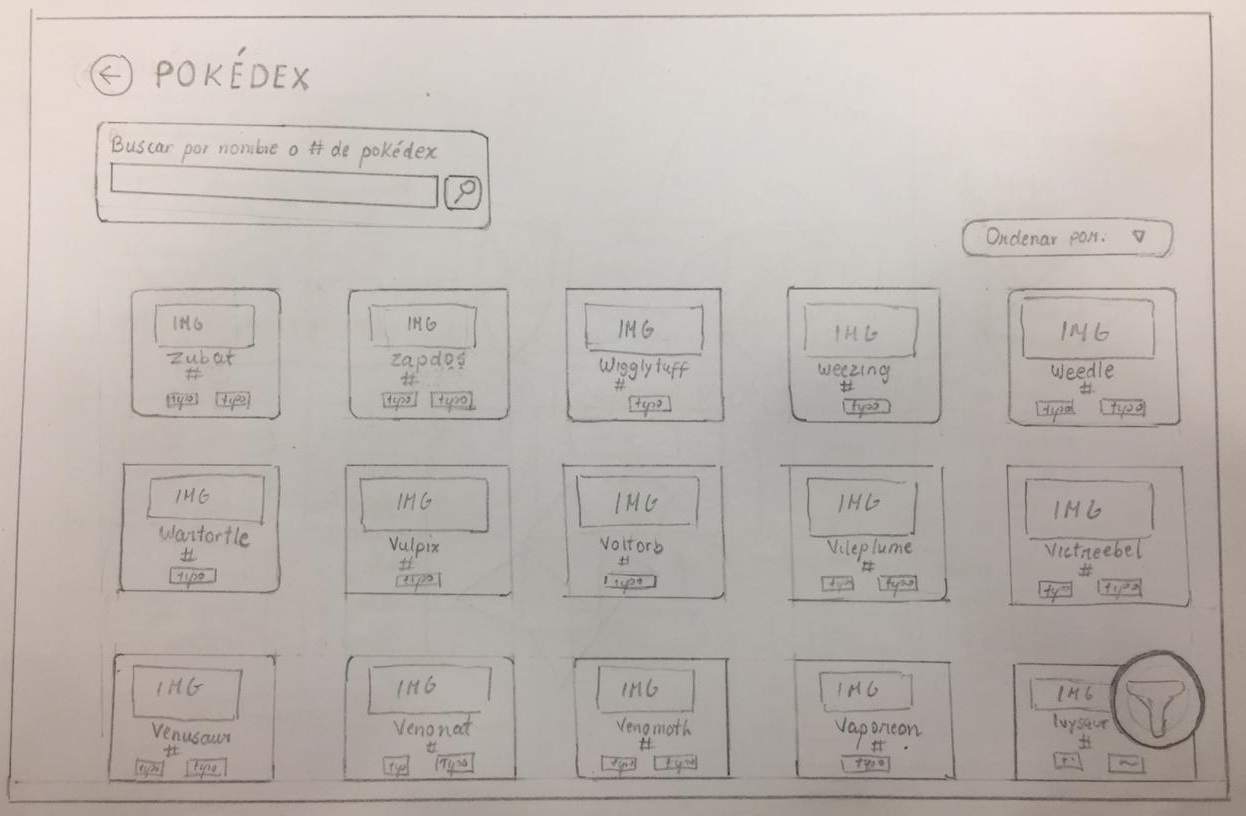 POKÉDEX
Buscar por nombre o # de pokédex
Ordenar por:
IMG
Zubat
#
tipo tipo
IMG
Zapdos
#
tipo tipo
IMG
Wigglytuff
#
tipo
IMG
Weezing
#
tipo
IMG
Weedle
#
tipo tipo
IMG
Wartortle
#
tipo
IMG
Vulpix
#
tipo
IMG
Voltorb
#
tipo
IMG
Vileplume
#
tipo tipo
IMG
Victreebel
#
tipo tipo
IMG
Venusaur
#
tipo tipo
IMG
Venonat
#
tip tipo
IMG
Venomoth
#
tipo tipo
IMG
Vaporeon
#
tipo
IMG
Ivysaur
#